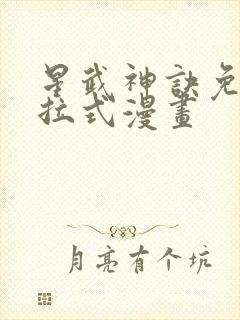 星武神訣免
拉式漫畫
月亮有个坑